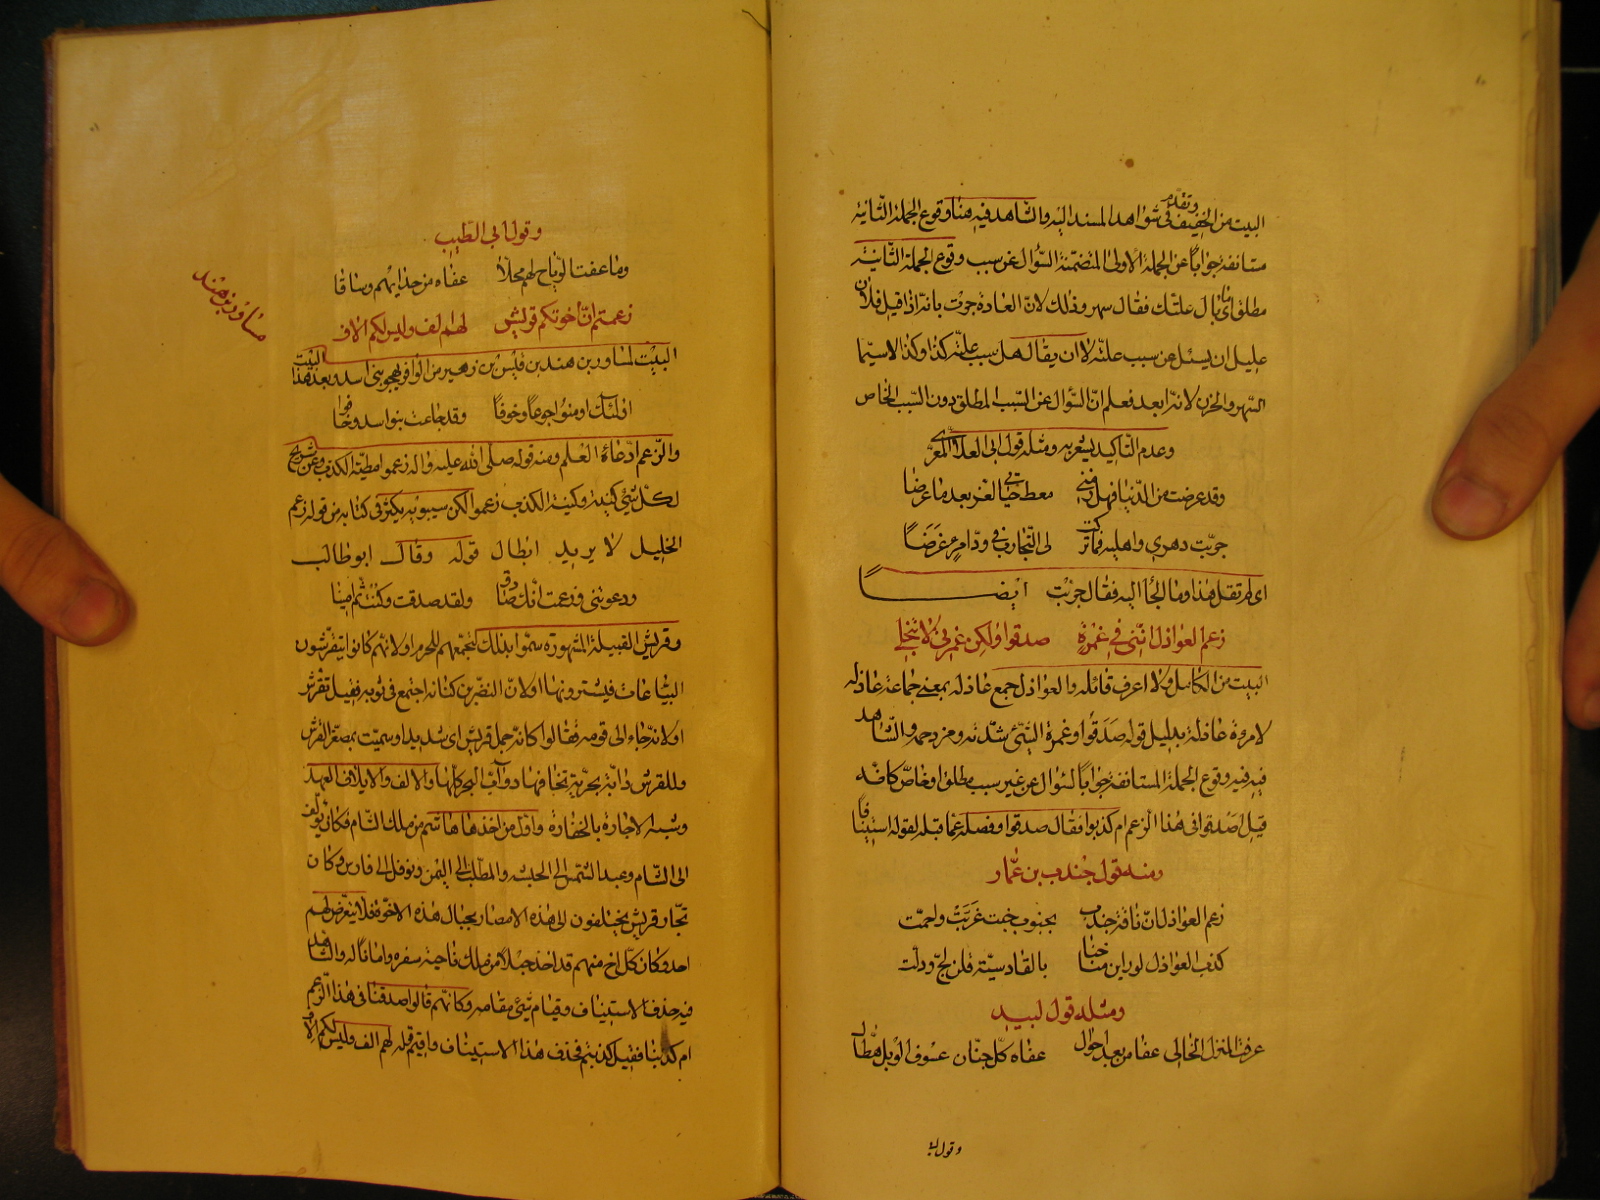 البيت من الخفيف وتقدم في شواهد المسند اليه والشاهد فيه هنا وقوع الجملة الثانية
مستانفة جوابا عن الجملة الاولى المتضمنة السؤال عن سبب وقوع الجملة الثانية
مطلقا اي ما بال علتك فقال سهر وذلك لان العادة جرت بانه اذا قيل فلان
عليل ان يسئل عن سبب علته لا ان يقال هل سبب علته كذا وكذا لاسيما
السهر والحزن لانه ابعد فعلم ان السؤال عن السبب المطلق دون السبب الخاص
وعدم التاكيد يشعر به ومثله قول ابي العلاء المعري
وقد غرضت من الدنيا فهل زمني معط حياتي لغر بعد ما غرضا
جربت دهري واهليه فما تركت لي التجارب في ود امرء غرضا
اي لم تقل هذا وما الجأ اليه فقال جربت ايضــــا
زعم العواذل انني في غمرة صدقوا ولكن غمرتي لا تنجلي
البيت من الكامل ولا اعرف قائله والعواذل جمع عاذلة بمعنى جماعة عاذلة
لا امرءة عاذلة بدليل قوله صدقوا وغمرة الشيئ شدته ومزدحمه والشاهد
فيه فيه وقوع الجملة المستانفة جوابا لسؤال عن غير سبب مطلق او خاص كانه
قيل اصدقوا في هذا الزعم ام كذبوا فقال صدقوا وفصله عما قبله لقوله استينافا
ومنه قول جندب بن عمار
زعم العواذل ان ناقة جندب بجنوب خبت غريت واجمت
كذب العواذل لو راين مناخنا بالقادسية قلن لج وذلت
ومثله قول لبيد
عرفت المنزل الخالي عفا من بعد احوال عفاه كل حنان عسوف الوبل هطال
وقول ابي
وقول ابي الطيب
وما عفت الرياح لهم محلا عفاه من حدا بهم وساقا
زعمتم ان اخوتكم قريش لهم الف وليس لكم الاف
مساور بن هند
البيت لمساور بن هند بن قيس بن زهير من الوافر يهجو بني اسد وبعد هذا البيت
اولئك اومنوا جوعا وخوفا وقد جاعت بنو اسد وخافوا
والزعم ادعاء العلم ومنه قوله صلى الله عليه واله زعموا مطية الكذب وعن شريح
لكل شيئ كنية وكنية الكذب زعموا لكن سيبويه يكثر في كتابه من قوله زعم
الخليل لا يريد ابطال قوله وقال ابو طالب
ودعوتني وزعمت انك صادق ولقد صدقت وكنت ثم امينا
وقريش القبيلة المشهورة سموا بذلك لتجمعهم للحرم او لانهم كانوا يتقرشون
البياعات فيشترونها او لان النضر بن كنانة اجتمع في ثوبه فقيل تقرش
او لانه جاء الى قومه فقالوا كانه جمل قريش اي شديد او سميت بمصغر القرش
وللقرش دابة بحرية تخافها دواب البحر كلها والالف والايلاف العهد
وشبه الاجارة بالخفارة واول من اخذها هاشم من ملك الشام فكان يؤلف
الى الشام وعبد الشمس الى الحبشة والمطلب الى اليمن ونوفل الى فارس وكان
تجار قريش يختلفون الى هذه الامصار بحبال هذه الاخوة فلا يتعرض لهم
احد وكان كل اخ منهم قد اخذ حبلا من ملك ناحية سفره وامانا له والشاهد
فيه حذف الاستيناف وقيام شيئ مقامه وكانهم قالوا صدقنا في هذا الزعم
ام كذبنا فقيل كذبتم فحذف هذا الاستيناف واقيم قوله لهم الف وليس لكم الاف